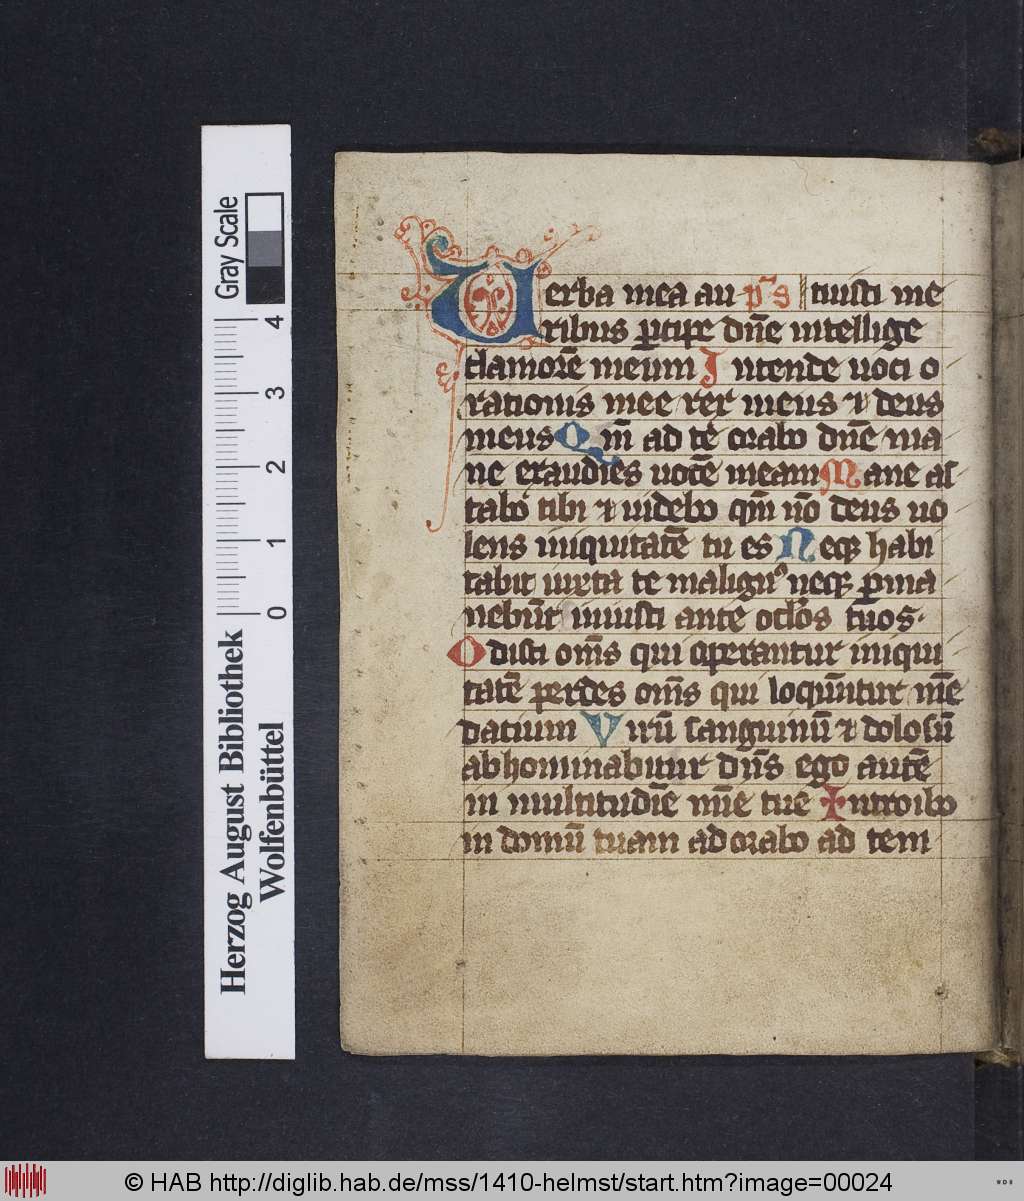 Verba mea au p̄s || tiuisti me
ribus ꝑcipe dn̄e intellige
clamorē meum Intende uoci o
rationis mee rex meus ⁊ deus
meus Qm̄ ad te orabo dn̄e ma
ne exaudies uocē meam Mane as
tabo tibi ⁊ uidebo qm̄ nō deus uo
lens iniquitatē tu es Neqꝫ habi
tabit iuxta te malignꝰ neqꝫ ꝑma
nebūt iniusti ante oclōs tuos.
Odisti om̄s qui operantur iniqui
tatē perdes om̄s qui loqūntur mē
datium Virū sanguinū ⁊ dolosū
abhominabitur dn̄s ego autē
in multitudīe mīe tue Introibo
in domū tuam adorabo ad tem
Gray Scale
0 1 2 3 4
Herzog August Bibliothek
Wolfenbüttel
© HAB http://diglib.hab.de/mss/1410-helmst/start.htm?image=00024